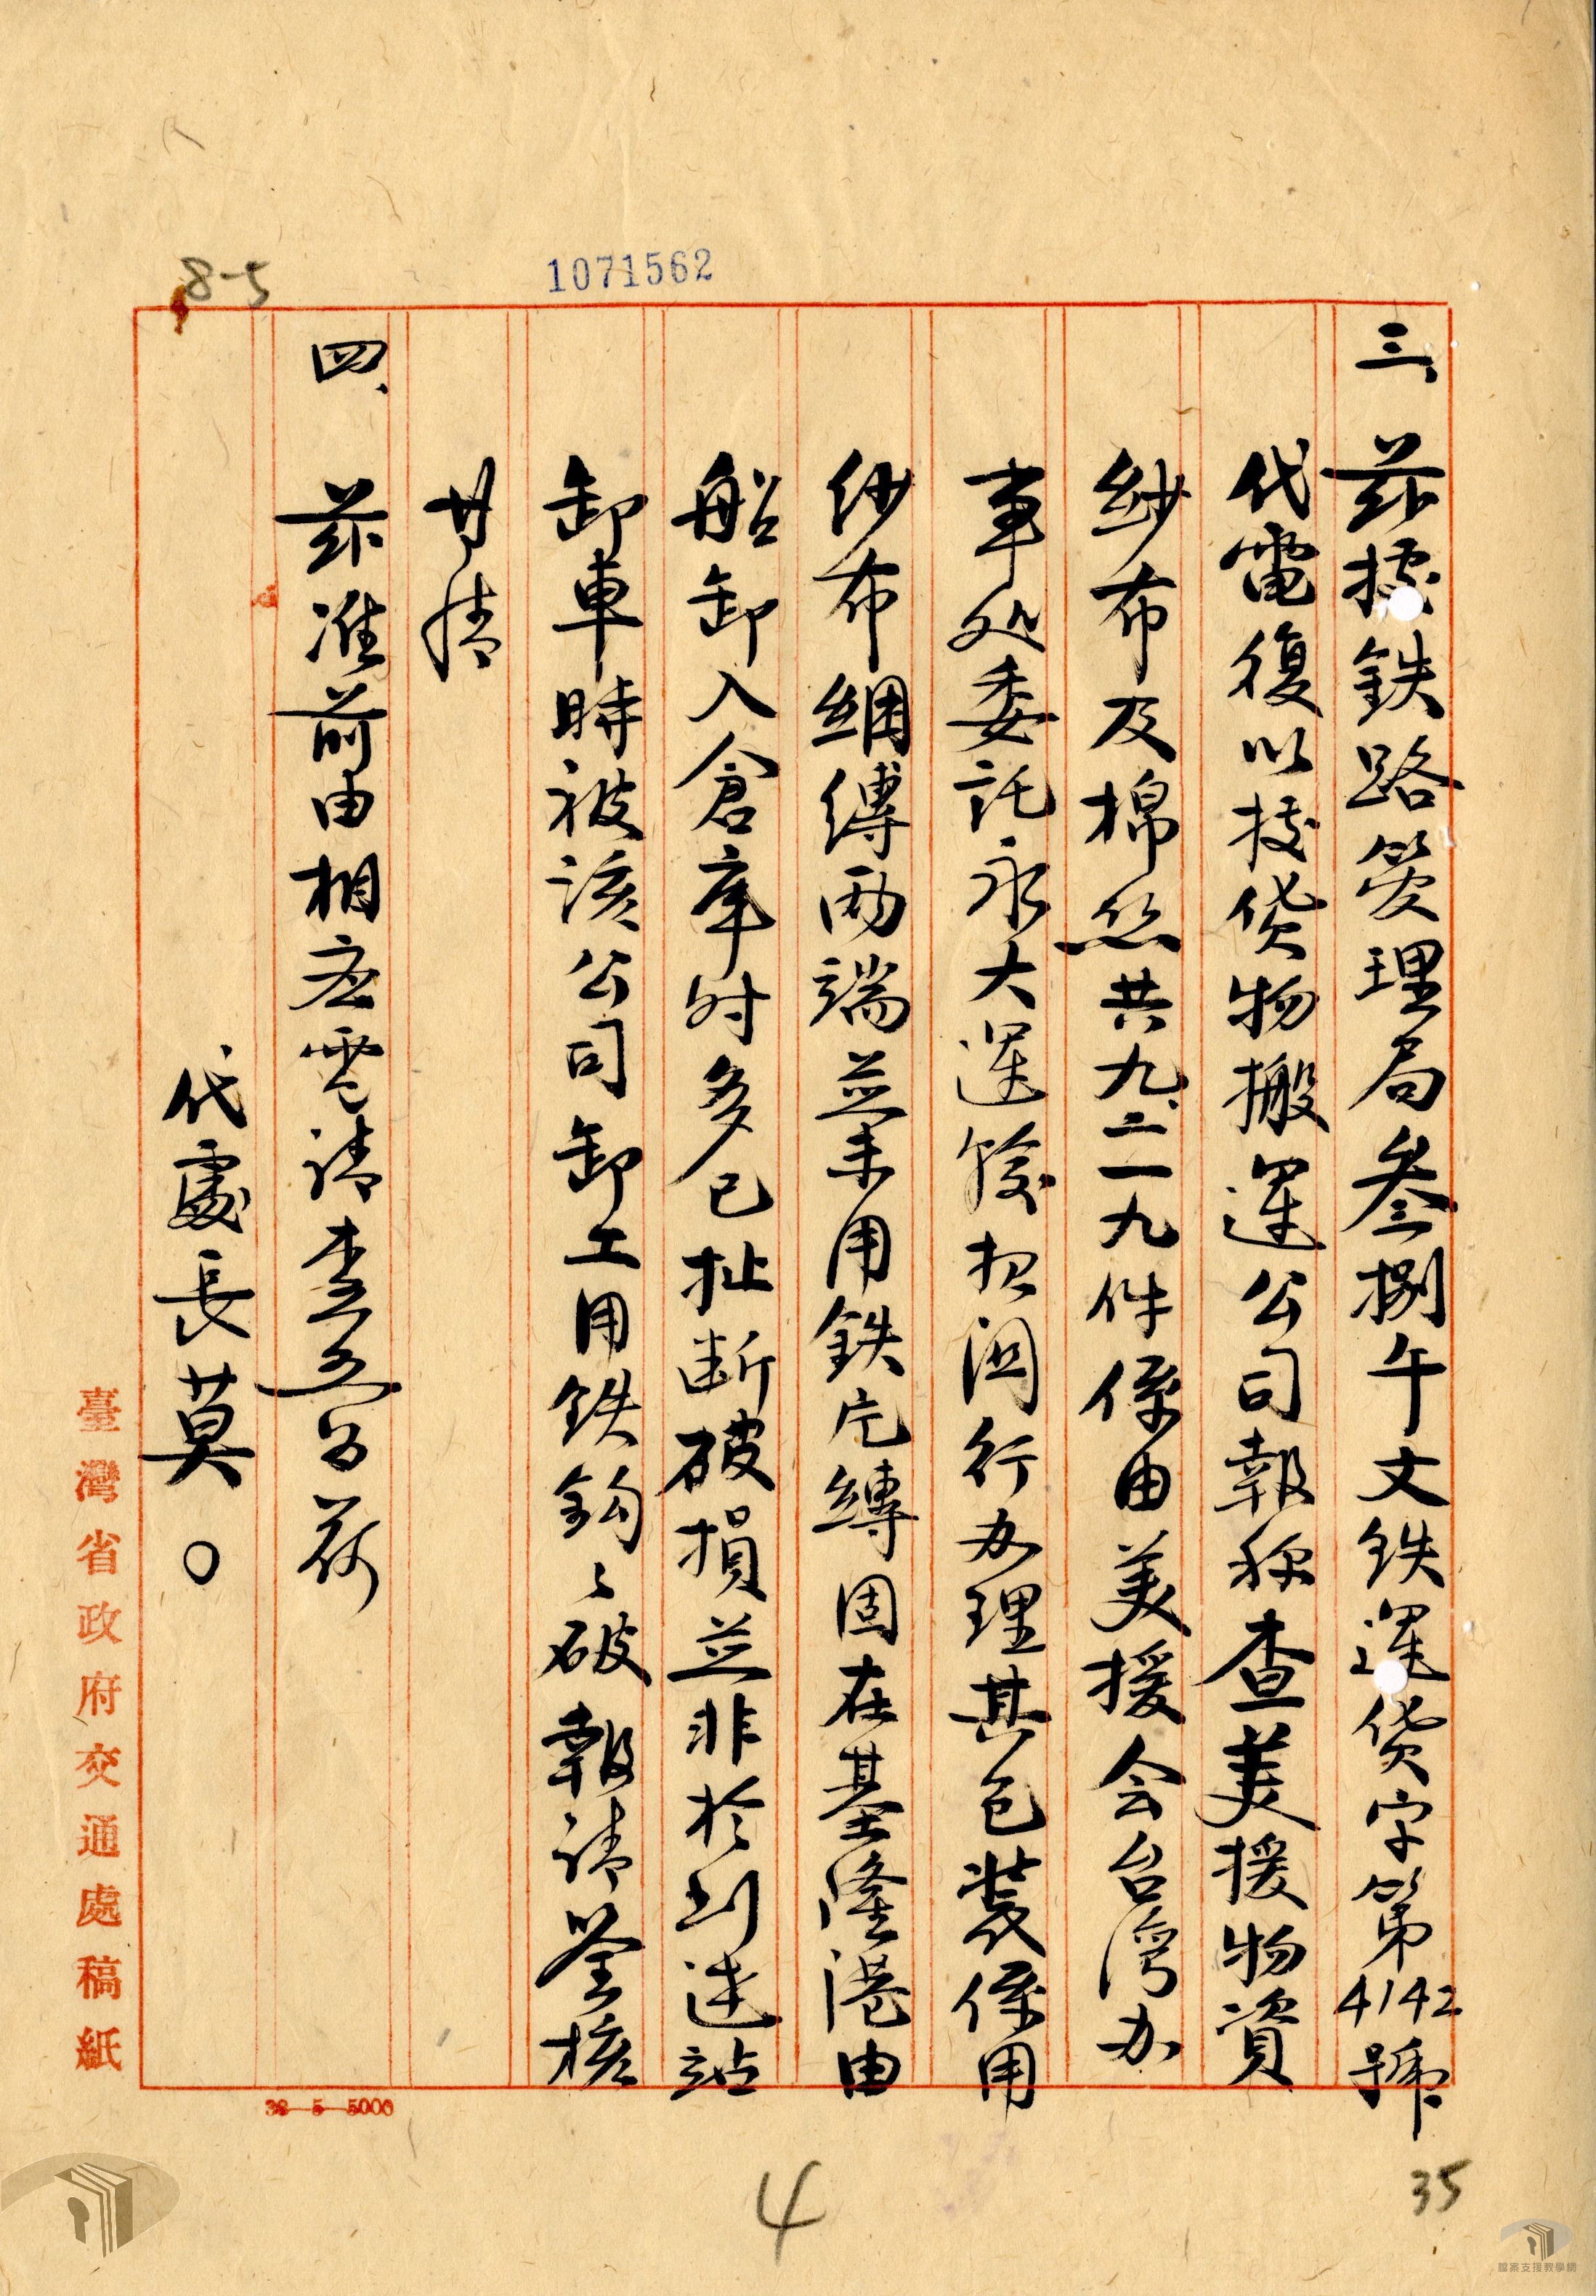 1071562
8-5
三、茲據鉄路管理局叁捌午文鉄運貨字第4142號
代電復以據貨物搬運公司報称查美援物資
紗布及棉紗共九、二一九件係由美援会台湾办
事処委託永大運輸報関行办理其包裝係用
紗布綑縛兩端並未用鉄皮縛固在基隆港由
船卸入倉庫時多已扯断破損並非於到達站
卸車時被該公司卸工用鉄鈎々破報請鑒核
等情
四、茲准前由相应電請查照為荷
代處長莫○
臺灣省政府交通處稿紙
38—5—5000
4
35
檔案支援教學網